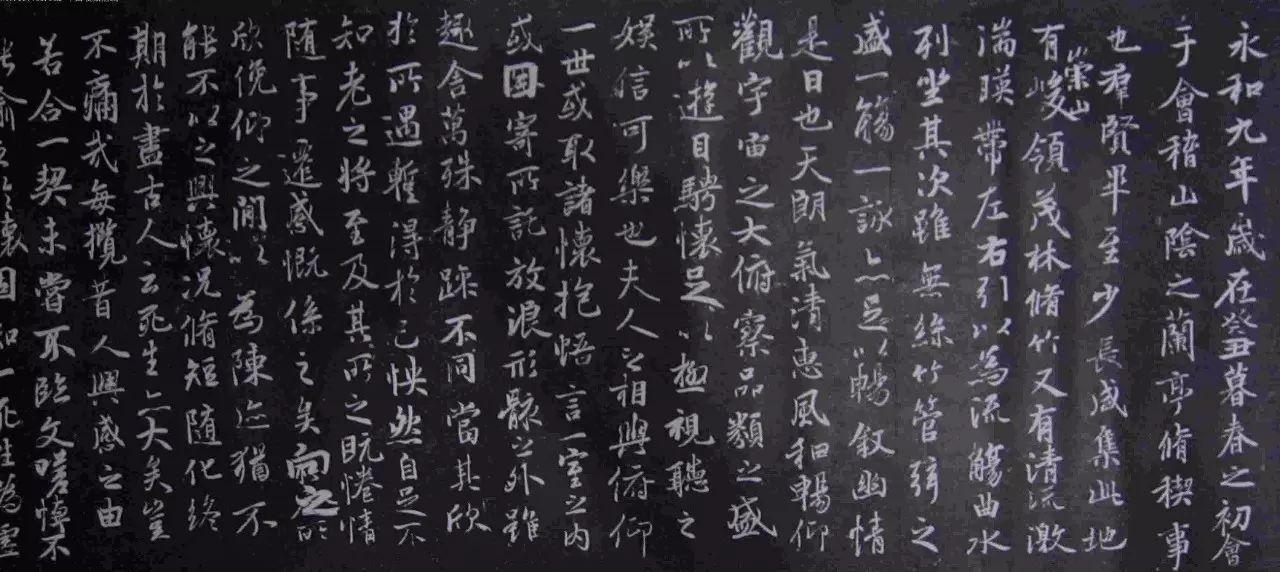 永和九年歲在癸丑暮春之初會
于會稽山陰之蘭亭脩稧事
也羣賢畢至少長咸集此地
有崇山峻領茂林脩竹又有清流激
湍暎帶左右引以為流觴曲水
列坐其次雖無絲竹管弦之
盛一觴一詠亦足以暢叙幽情
是日也天朗氣清惠風和暢仰
觀宇宙之大俯察品類之盛
所以遊目騁懷足以極視聽之
娛信可樂也夫人之相與俯仰
一世或取諸懷抱悟言一室之內
或因寄所託放浪形骸之外雖
趣舍萬殊静躁不同當其欣
於所遇蹔得於己怏然自足不
知老之將至及其所之既惓情
随事遷感慨係之矣向之所
欣俛仰之間以為陳迹猶不
能不以之興懷況脩短随化終
期於盡古人云死生亦大矣豈
不痛哉每攬昔人興感之由
若合一契未嘗不臨文嗟悼不
能喻之於懷固知一死生為虛